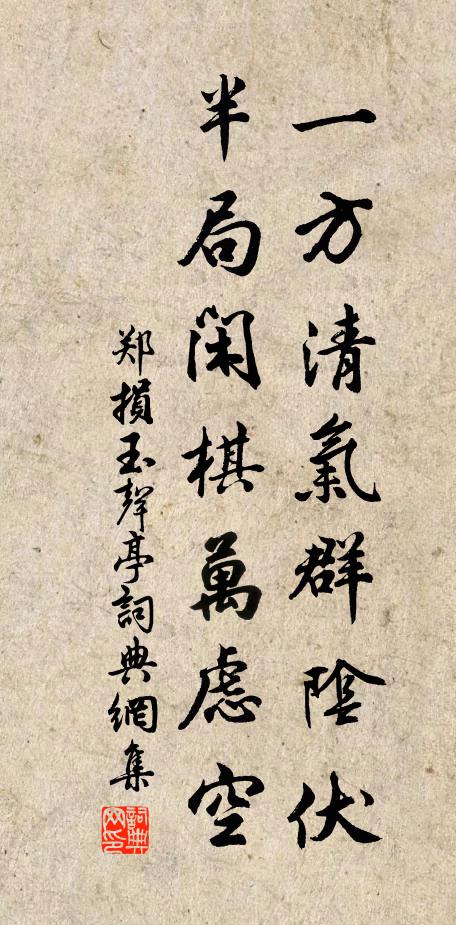 一方清氣群陰伏
半局閑棋萬慮空
郑損玉聲亭詞典網集
詞典网印